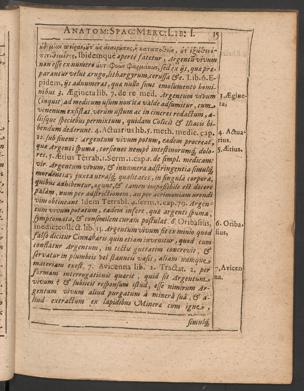 ANATOM: SPAG: MERC: LIB: I. 15
Ibidemque aperte fatetur, Argentũ vivum
non esse ex numero sed ex ijs, quæ præ-
parantur velut ærugo, lithargyrum, cerussa &c. Lib. 6. E-
pidem, ijs adnumerat, quæ nulla sunt emolumento homi-
nibus 3. Æginetalib. 7. de re med. Argentum vivum
(inquit) ad medicum usum non ita valde assumitur, cum
venenum existat. verùm ustum ac in cineres redactum, a-
lijsque speciebus permixtum, quidam Colicis & Iliacis bi-
bendum dederunt. 4. Actuarius lib. 5. meth. medic. cap.
12. sub finem: argentum vivum potum, eadem procreat,
quæ Argenti spuma, torsiones nempè intestinorumq; dolo-
res. 5. Ætius Tetrab 1. Serm. 1. cap. 2. de simpl. medicam:
vir. Argentum vivum, &
quibus adhibentur, agunt, & tamen impossibile est dicere
palàm, num per adstrictionem, an per acrimoniam erodẽ-
vim obtineant Idem Tetrab. 4. serm. 1. cap. 79. Argen-
tum vivum potatum, eadem infert, quæ argenti spuma,
symptomata, & consimilem curam postulat. 6. Oribasius,
medic. collect. lib. 13. Argentum vivum fit ex minio quod
falsò dicitur Cinnabaris quin etiam invenitur, quod cum
constatur Argentum, in tectis guttatim concrevit, &
servatur in plumbeis vel stanneis vasis, aliam namque
materiam exest. 7. Avicenna lib. 2. Tractat. 2. per
formam interrogationis quærit, quid sit Argentum
vivum & subijcit responsum istud, esse nimirum Ar-
gentum vivum aliud purgatum à minerâ suâ, & a-
liud extractum ex lapidibus Mineræ cum igne,
similiq;
3. Ægine-
ta,
4. Actua-
rius.
5. Ætius.
6. Oriba-
sius,
7. Avicen
na.